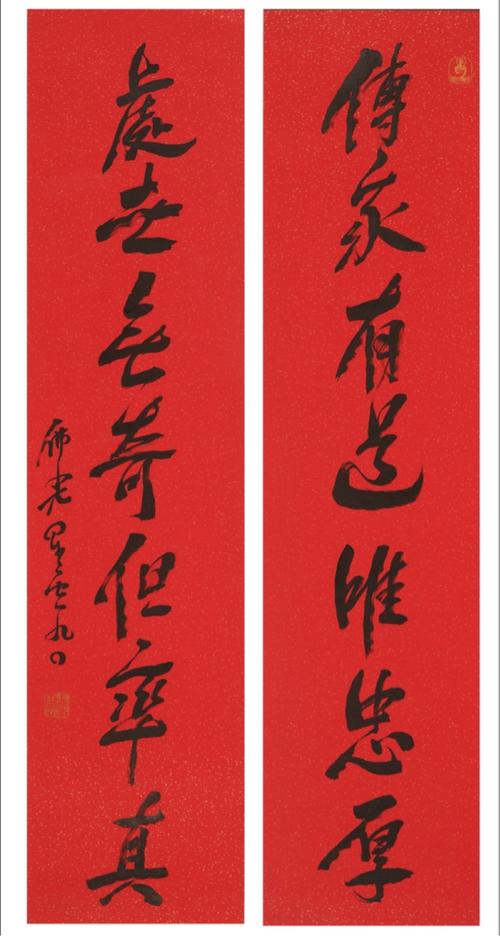 傳家有道唯忠厚
處世無奇但率真
佛光星雲九